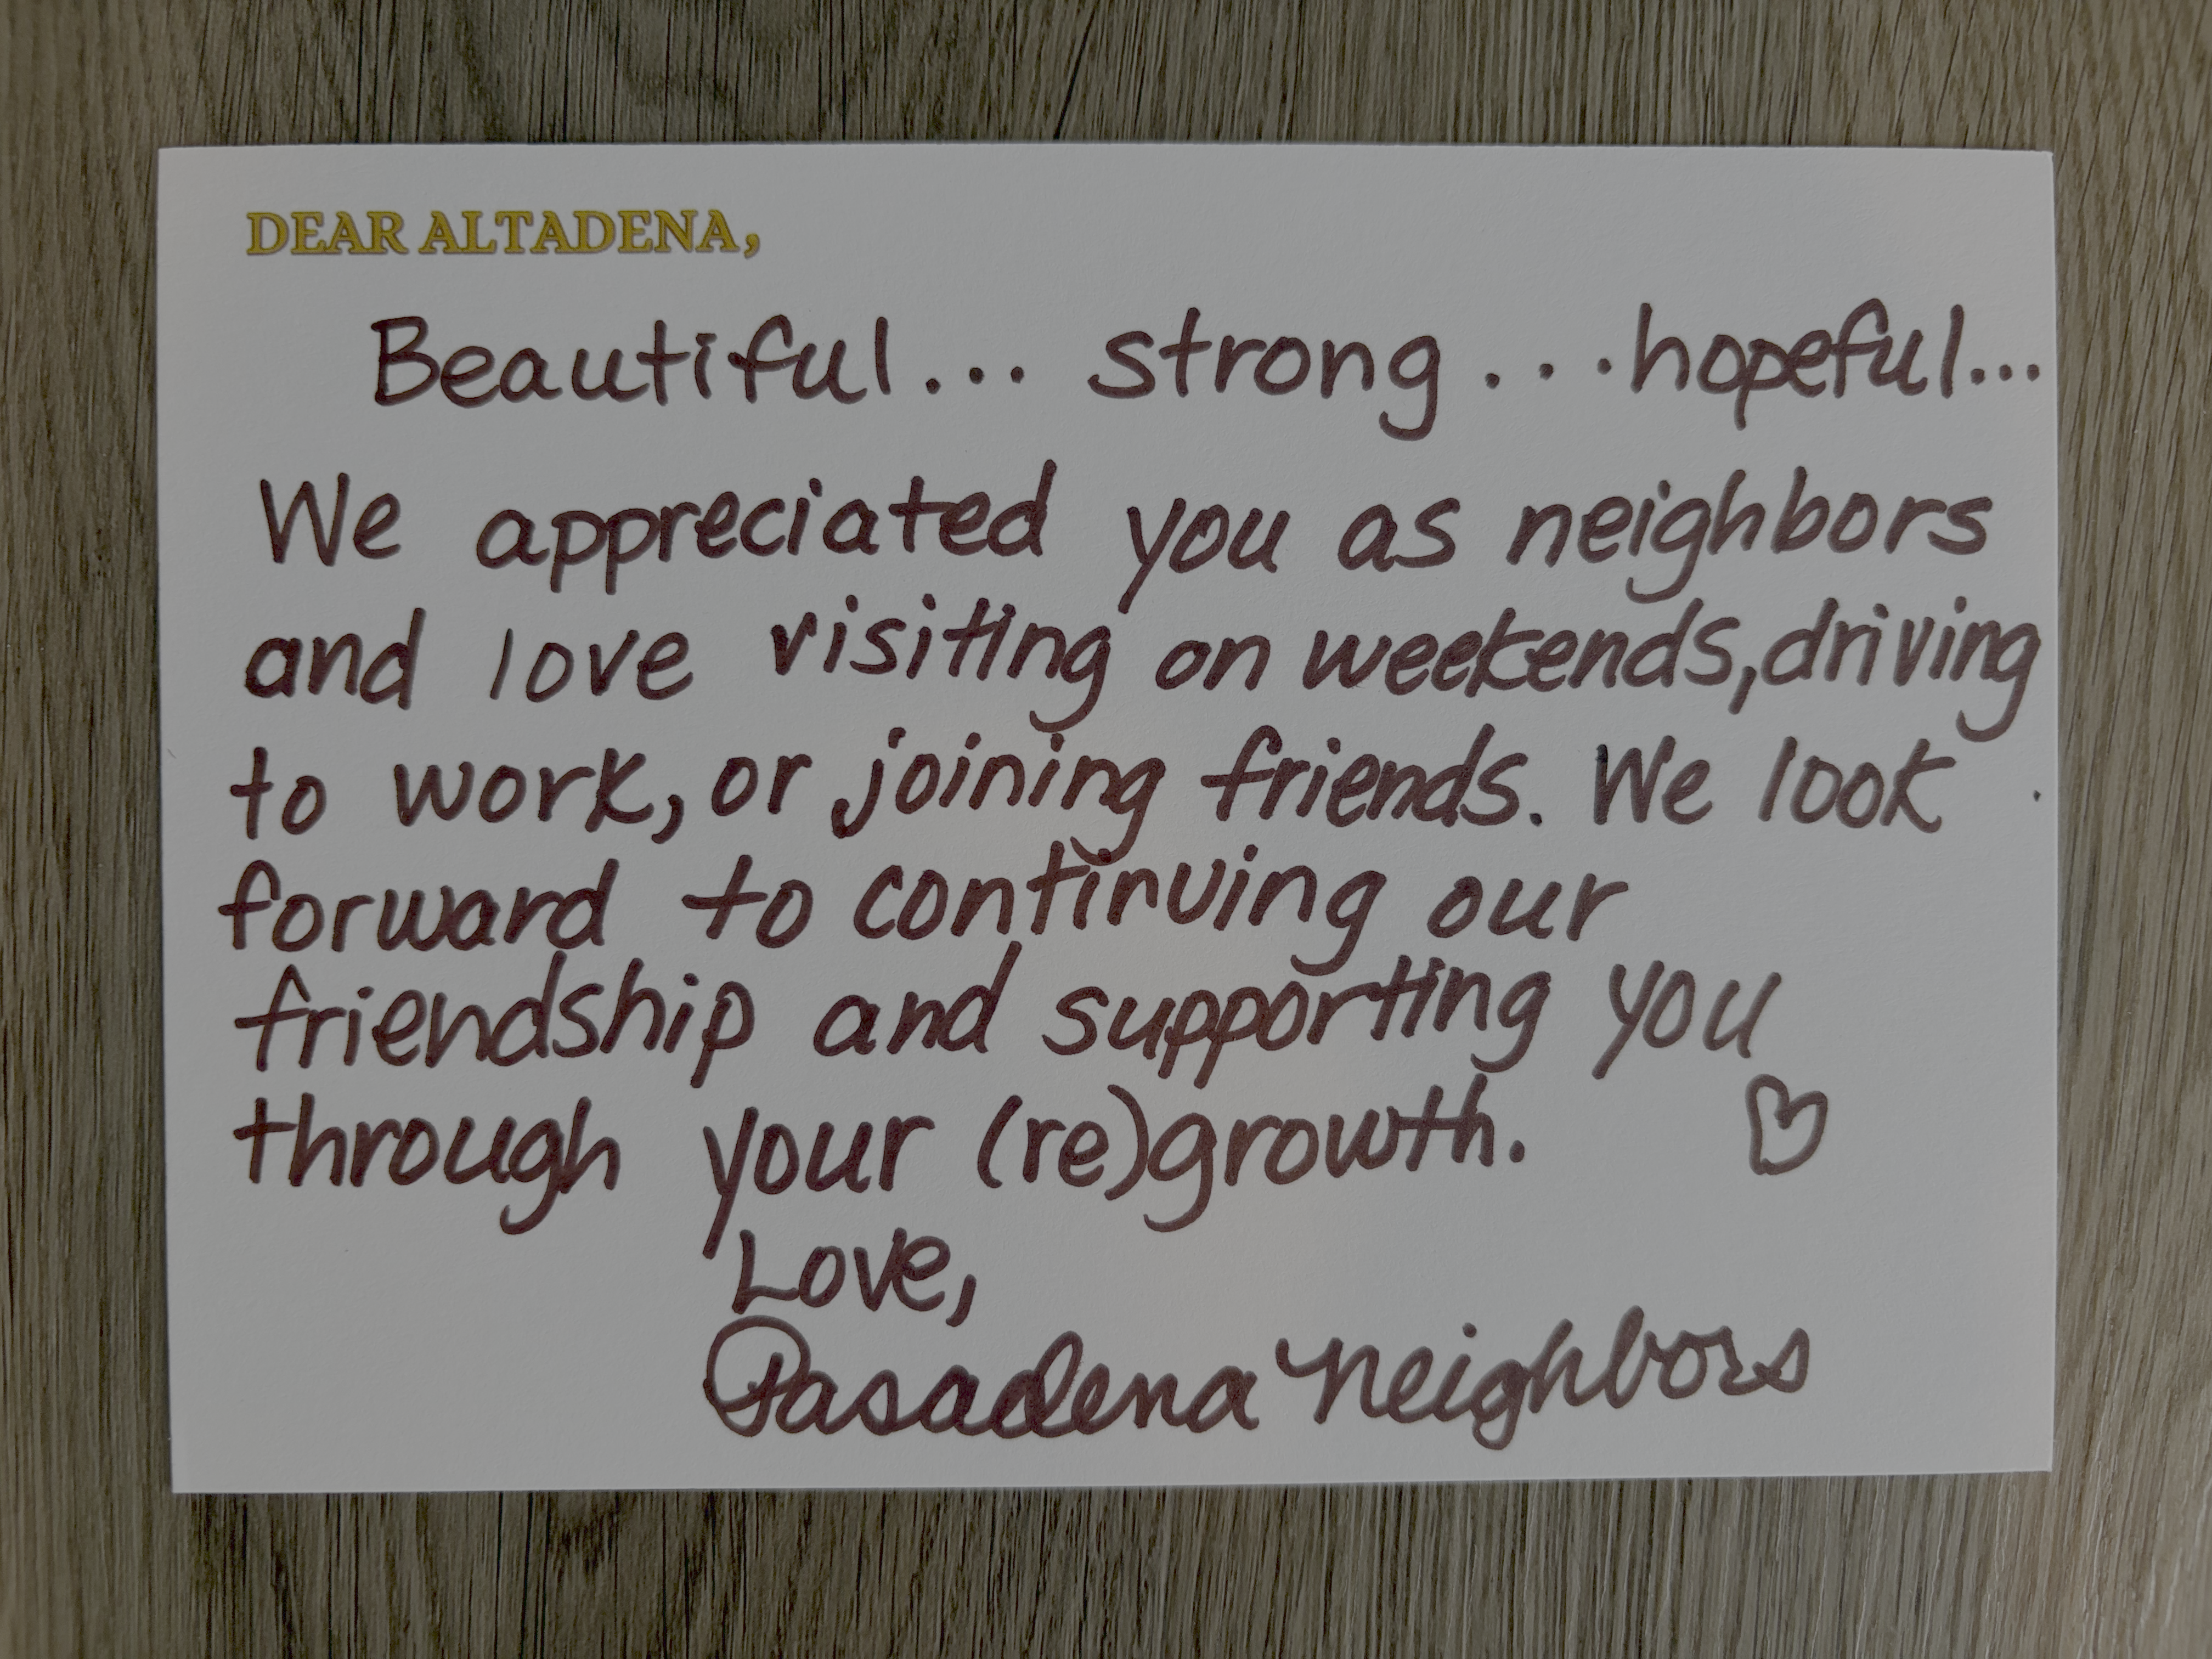 DEAR ALTADENA,
Beautiful... strong...hopeful...
We appreciated you as neighbors
and love visiting on weekends, driving
to work, or joining friends. We look
forward to continuing our
friendship and supporting you
through your (re)growth.
Love,
Pasadena Neighbors